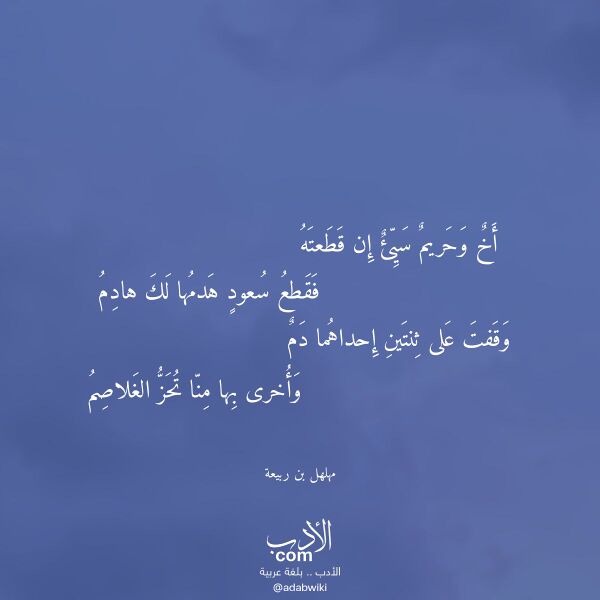 أَخٌ وَحَريمٌ سَيِّئٌ إِن قَطَعتَهُ
فَقَطعُ سُعودٍ هَدمُها لَكَ هادِمُ
وَقَفتَ عَلى ثِنتَينِ إِحداهُما دَمٌ
وَأُخرى بِها مِنّا تُحَزُّ الغَلاصِمُ
مهلهل بن ربيعة
الأدب
com
الأدب .. بلغة عربية
@adabwiki